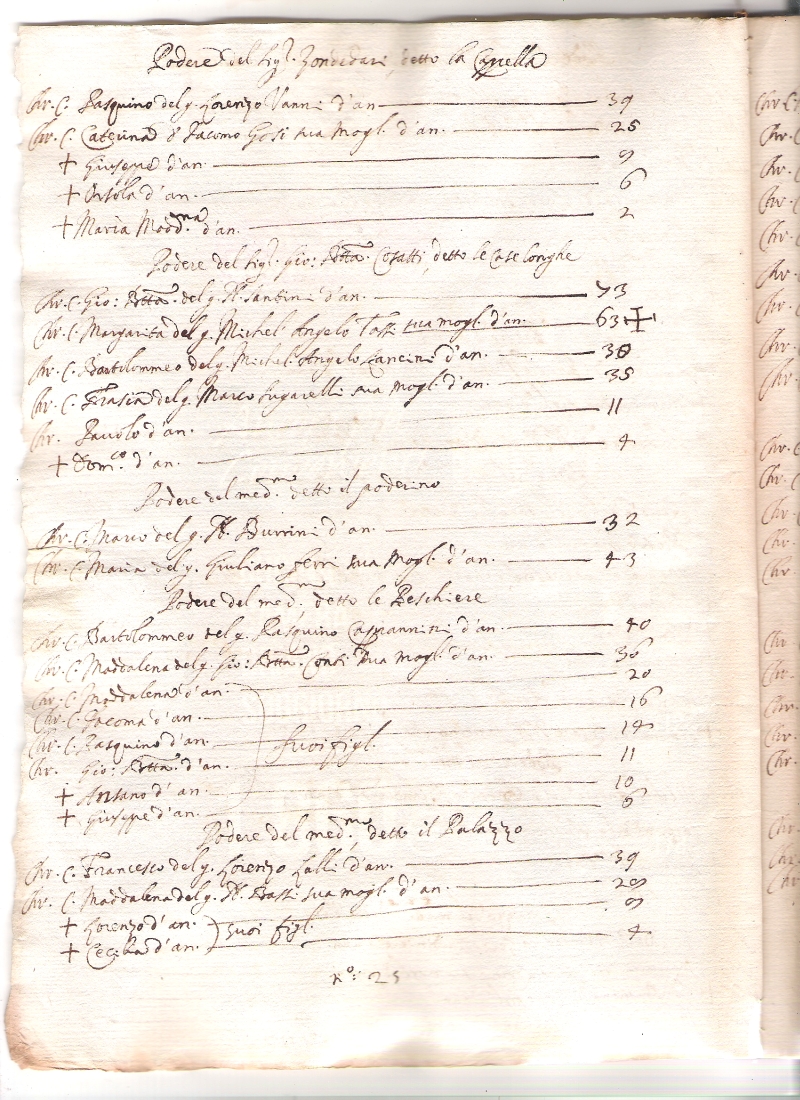 Podere del Sig.r Zondadari, detto la Capella
Chr. C. Pasquino del q. Lorenzo Vanni d'an 39
Chr. C. Caterina d Iacomo Gosi sua mogl. d'an. 25
+ Giuseppe d'an. 9
+ Orsola d'an. 6
+ Maria Madd.na d'an. 2
Podere del Sig.r Gio: Btta. Cosatti, detto le Case longhe
Chr. C. Gio: Btta. del q. Santini d'an. 73
Chr. C. Margarita del q. Michel Angelo sua mogl. d'an. 63 +
Chr. C. Bartolommeo del q. Michel Angelo Lancini d'an. 38
Chr. C. Frasia del q. Marco Sugarelli sua mogl. d'an. 35
Chr. Pavolo d'an. 11
+ Dom.co d'an. 4
Podere del med.mo detto il poderino
Chr. C. Marco del q. Burrini d'an. 32
Chr. C. Maria del q. Giuliano ferri sua Mogl. d'an. 43
Podere del med.mo, detto le Peschiere
Chr. C. Bartolommeo del q. Pasquino Capannini d'an. 40
Chr. C. Maddalena del q. Gio: Btta. Conti sua mogl. d'an. 36
Chr. C. Maddalena d'an. 20
Chr. C. Iacoma d'an. 16
Chr. C. Pasquino d'an. 14 suoi figl.
Chr. Gio: Btta. d'an. 11
+ Ansano d'an. 10
+ Giuseppe d'an. 6
Podere del med.mo, detto il Palazzo
Chr. C. Francesco del q. Lorenzo Lalli d'an. 39
Chr. C. Maddalena del q. Bassi sua mogl. d'an. 29
+ Lorenzo d'an. suoi figl. 9
+ Cecilia d'an. 4
n.o: 25